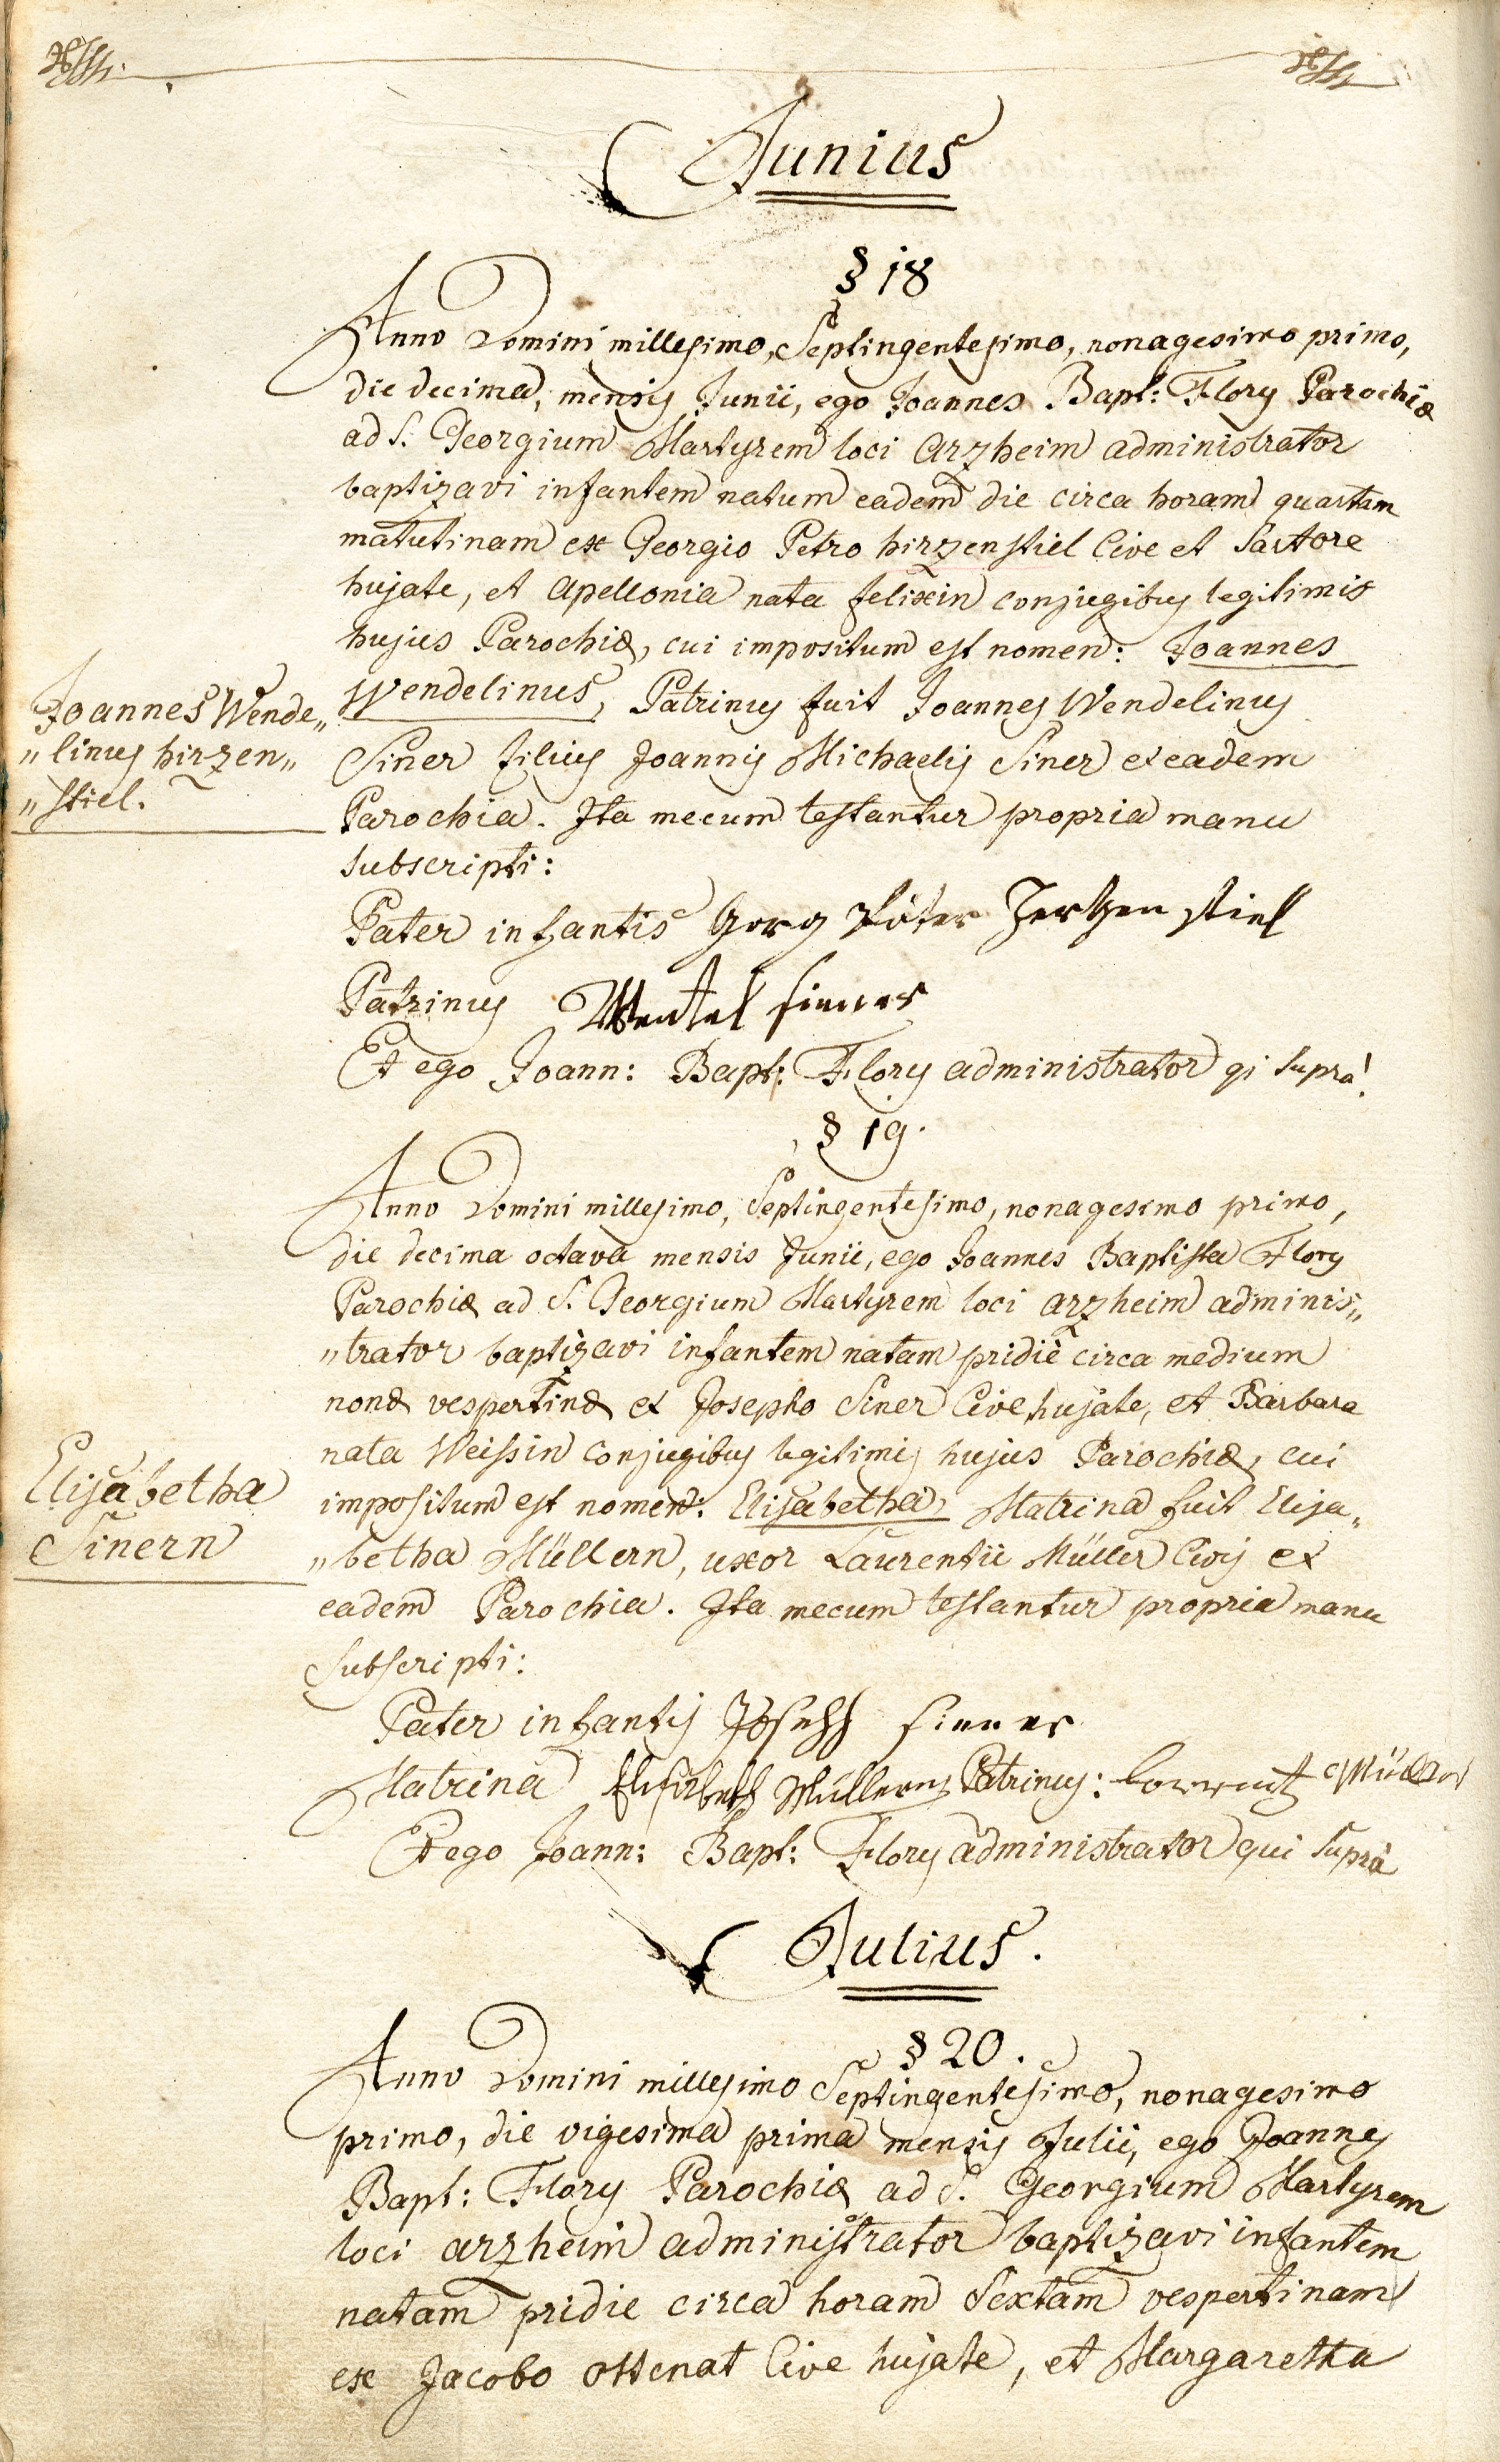 Junius
§ 18
Anno Domini millesimo, Septingentesimo, nonagesimo primo,
die decima, mensis Junii, ego Joannes Bapt: Flory Parochiæ
ad S. Georgium Martyrem loci Arzheim administrator
baptizavi infantem natum eadem die circa horam quartam
matutinam ex Georgio Petro hirzenstiel Cive et Sartore
hujate, et Apellonia nata felixin conjugibus legitimis
hujus Parochiæ, cui impositum est nomen: Joannes
Wendelinus, Patrinus fuit Joannes Wendelinus
Siner filius Joannis Michaelis Siner ex eadem
Parochia. Ita mecum testantur propria manu
subscripti:
Joannes Wende„
„linus hirzen„
„stiel.
Pater infantis Gorg Póter Hertzenstiel
Patrinus Wentel sinner
Et ego Joann: Bapt: Flory administrator qi suprà.
§ 19.
Anno Domini millesimo, Septingentesimo, nonagesimo primo,
die decima octava mensis Junii, ego Joannes Baptista Flory
Parochiæ ad S. Georgium Martyrem loci arzheim adminis„
„trator baptizavi infantem natam pridiè circa medium
nonæ vespertinæ ex Josepho Siner Cive hujate, et Barbara
nata Weissin conjugibus legitimis hujus Parochiæ, cui
impositum est nomen: Elisabetha, Matrina fuit Elisa„
„betha Müllern, uxor Laurentii Müller Civis ex
eadem Parochia. Ita mecum testantur propria manu
subscripti:
Elisabetha
Sinern
Pater infantis Joseph sinner
Matrina Elisabeth Müllern Patrinus: Lorentz Müller
Et ego Joann: Bapt: Flory administrator qui suprà
Julius.
§ 20.
Anno Domini millesimo Septingentesimo, nonagesimo
primo, die vigesima prima mensis Julii, ego Joannes
Bapt: Flory Parochiæ ad S. Georgium Martyrem
loci arzheim administrator baptizavi infantem
natam pridie circa horam sextam vespertinam
ex Jacobo Ottenat Cive hujate, et Margaretha